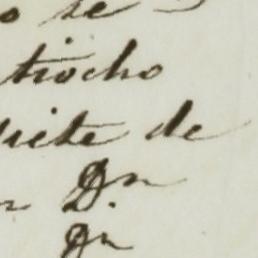 o se
triocho
siete de
n Dn
Dn